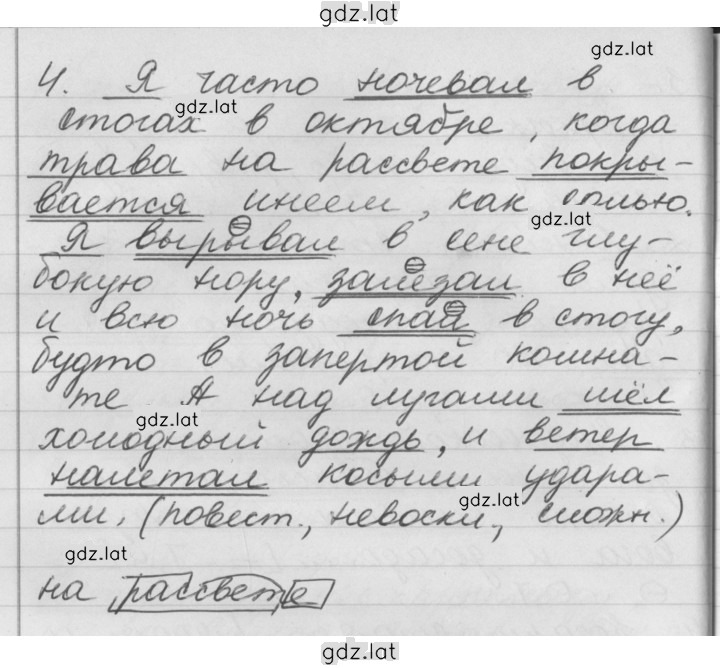 gdz.lat
gdz.lat
4. Я часто ночевал в
gdz.lat
стогах в октябре, когда
трава на рассвете покры-
вается инеем, как солью.
gdz.lat
Я вырывал в сене глу-
бокую нору, залезал в неё
и всю ночь спал в стогу,
будто в запертой комна-
те. А над лугами шёл
gdz.lat
холодный дождь, и ветер
налетал косыми удара-
gdz.lat
ми. (повест., невоскл., сложн.)
gdz.lat
на рассвете
gdz.lat